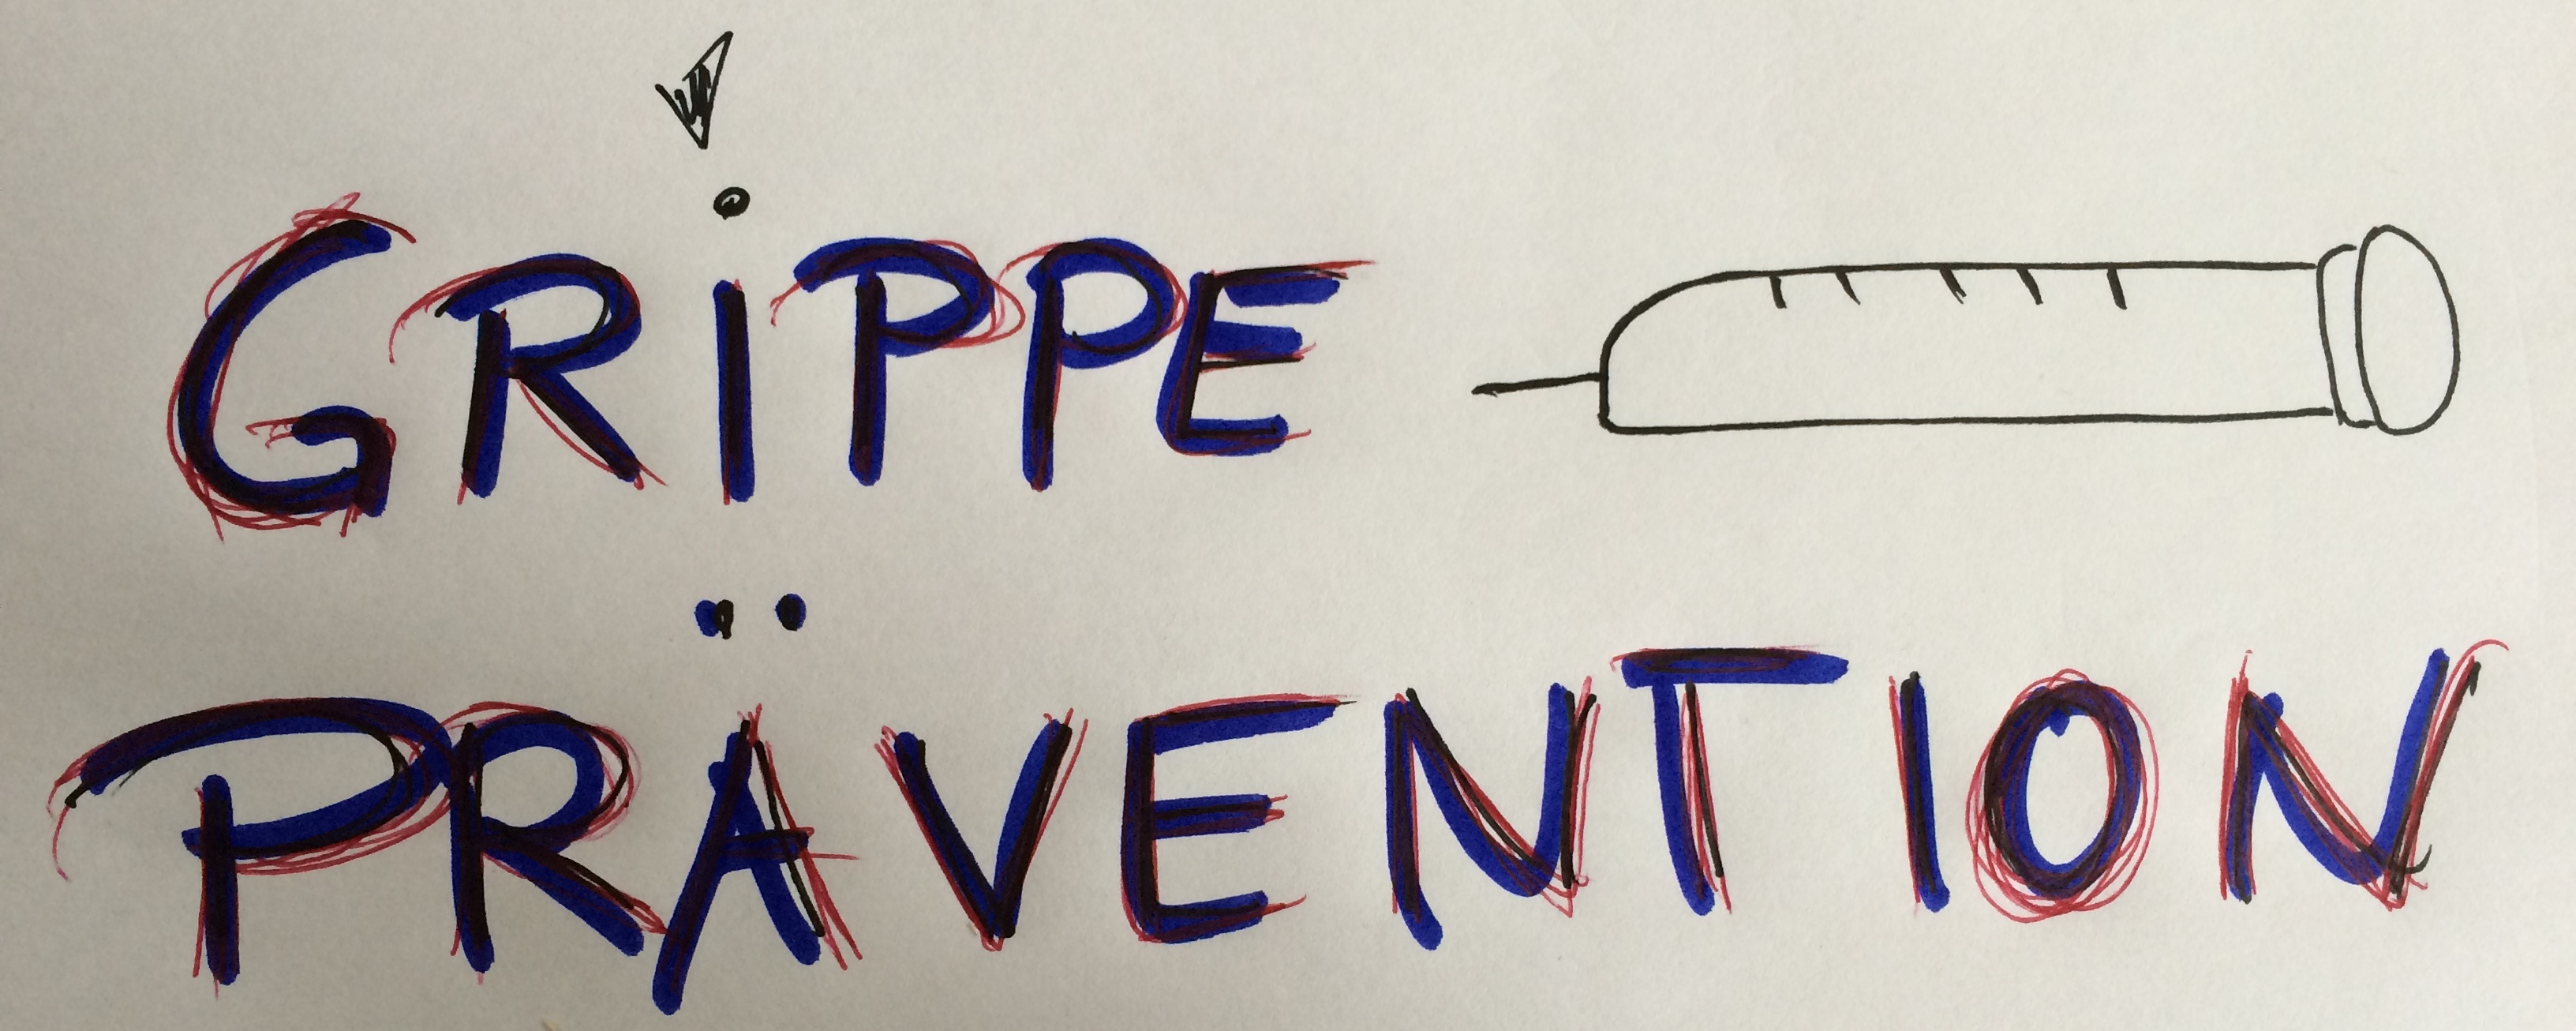 GRiPPE
PRÄVENTION